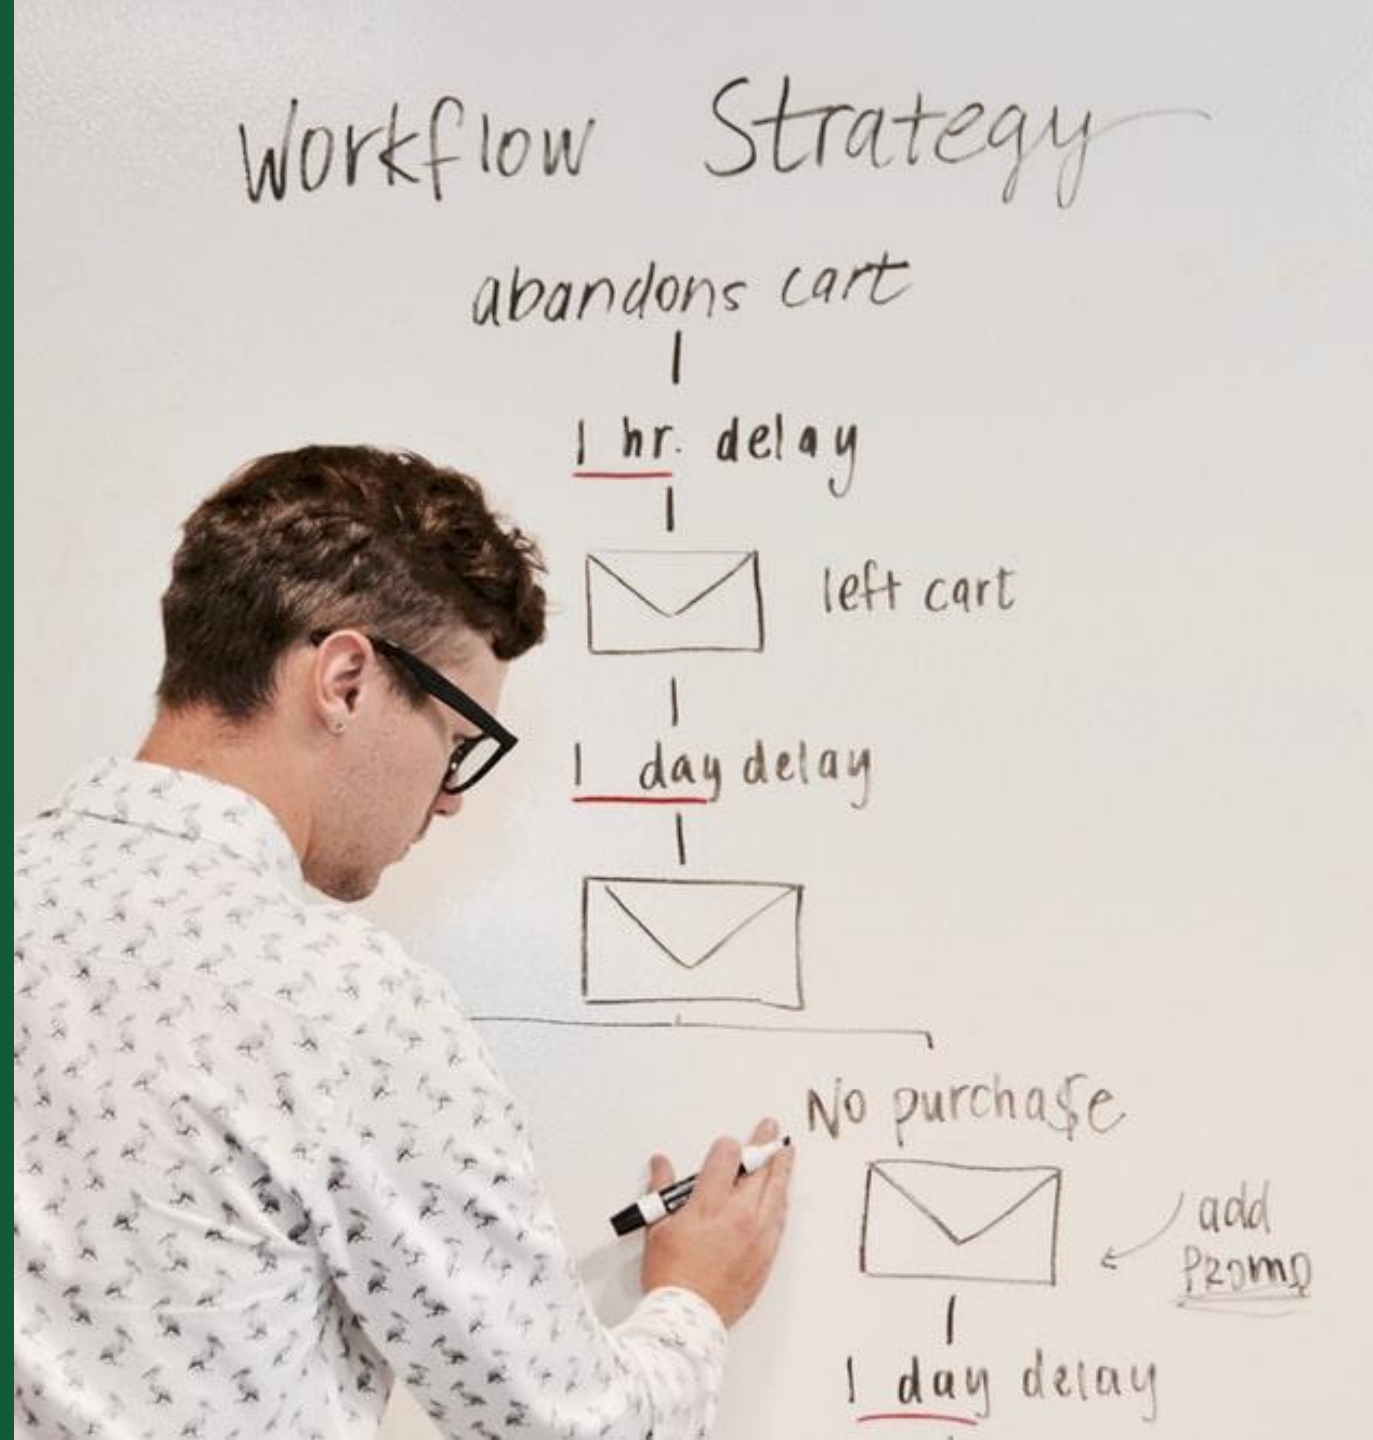 Workflow Strategy
abandons cart
1 hr. delay
left cart
1 day delay
No purchase
add
Promo
1 day delay